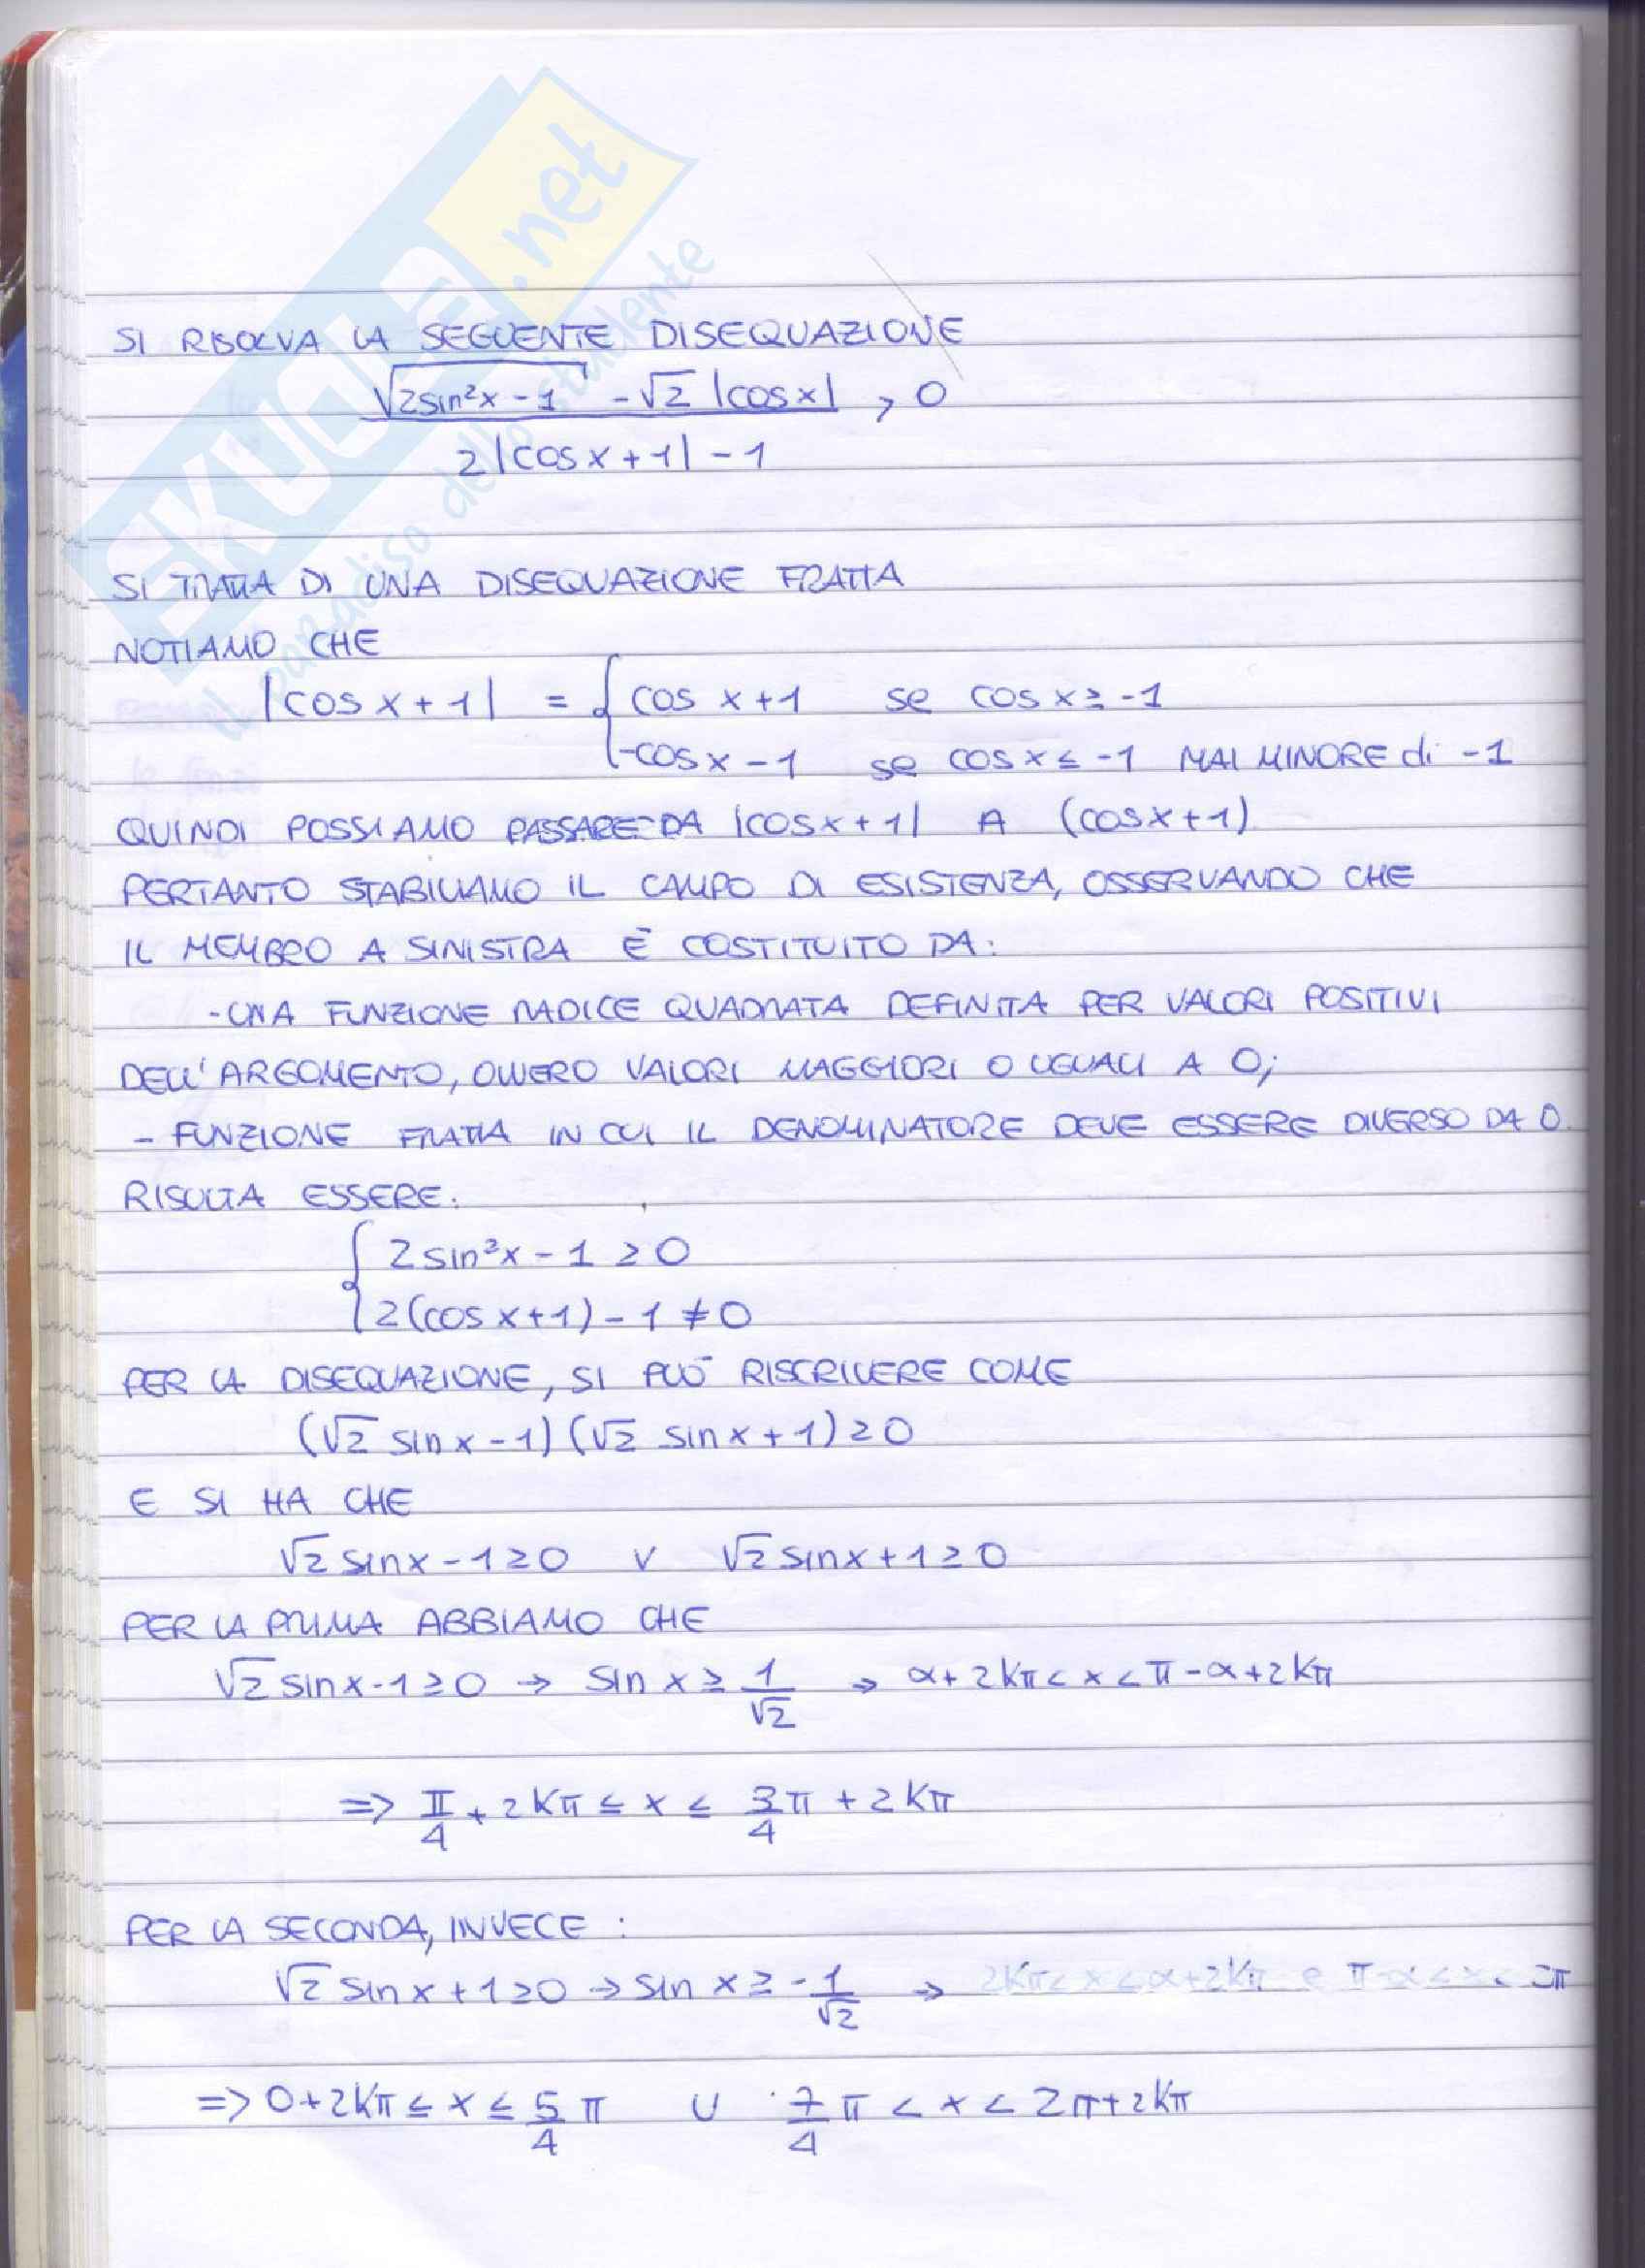 SKUOLA.net
il paradiso dello studente
SI RISOLVA LA SEGUENTE DISEQUAZIONE
√(2sin²x - 1) - √2 |cos x| > 0
2|cos x + 1| - 1
SI TRATTA DI UNA DISEQUAZIONE FRATTA
NOTIAMO CHE
|cos x + 1| = { cos x + 1 se cos x ≥ -1
-cos x - 1 se cos x ≤ -1 MAI MINORE di -1
QUINDI POSSIAMO PASSARE DA |cos x + 1| A (cos x + 1)
PERTANTO STABILIAMO IL CAMPO DI ESISTENZA, OSSERVANDO CHE
IL MEMBRO A SINISTRA È COSTITUITO DA:
- UNA FUNZIONE RADICE QUADRATA DEFINITA PER VALORI POSITIVI
DELL'ARGOMENTO, OVVERO VALORI MAGGIORI O UGUALI A 0;
- FUNZIONE FRATTA IN CUI IL DENOMINATORE DEVE ESSERE DIVERSO DA 0.
RISULTA ESSERE:
{ 2 sin²x - 1 ≥ 0
2(cos x + 1) - 1 ≠ 0
PER LA DISEQUAZIONE, SI PUÒ RISCRIVERE COME
(√2 sin x - 1) (√2 sin x + 1) ≥ 0
E SI HA CHE
√2 sin x - 1 ≥ 0 v √2 sin x + 1 ≥ 0
PER LA PRIMA ABBIAMO CHE
√2 sin x - 1 ≥ 0 → sin x ≥ 1/√2 → α + 2kπ < x < π - α + 2kπ
=> π/4 + 2kπ ≤ x ≤ 3/4 π + 2kπ
PER LA SECONDA, INVECE :
√2 sin x + 1 ≥ 0 → sin x ≥ -1/√2 → 2kπ < x < α + 2kπ e π - α < x < 2π
=> 0 + 2kπ ≤ x ≤ 5/4 π U 7/4 π < x < 2π + 2kπ